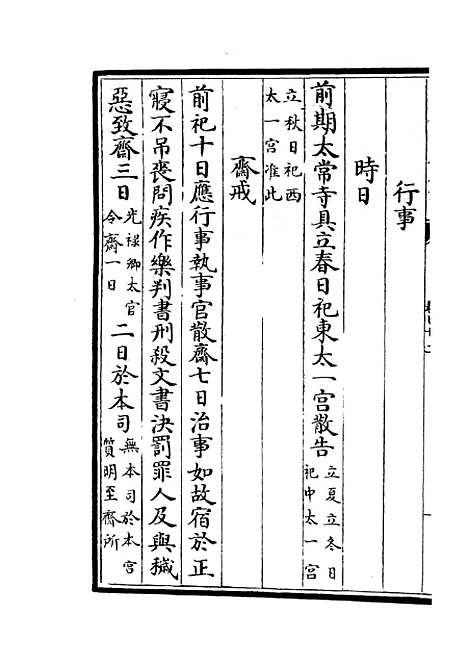 行事
時日
前期太常寺具立春日祀東太一宫散告立夏立冬日祀中太一宫
立秋日祀西太一宫准此
齋戒
前祀十日應行事執事官散齋七日治事如故宿於正
寢不吊喪問疾作樂判書刑殺文書決罰罪人及與穢
惡致齋三日光禄卿太官令齋一日二日於本司無本司於本宫質明至齋所